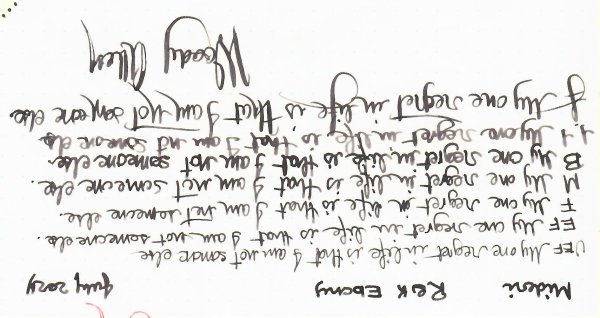 Midori R&K Ebony July 2024
UEF My one regret in life is that I am not someone else
EF My one regret in life is that I am not someone else.
F My one regret in life is that I am not someone else.
M My one regret in life is that I am not someone else.
B My one regret in life is that I am not someone else.
1.1 My one regret in life is that I am not someone else
My one regret in life is that I am not someone else.
Woody Allen